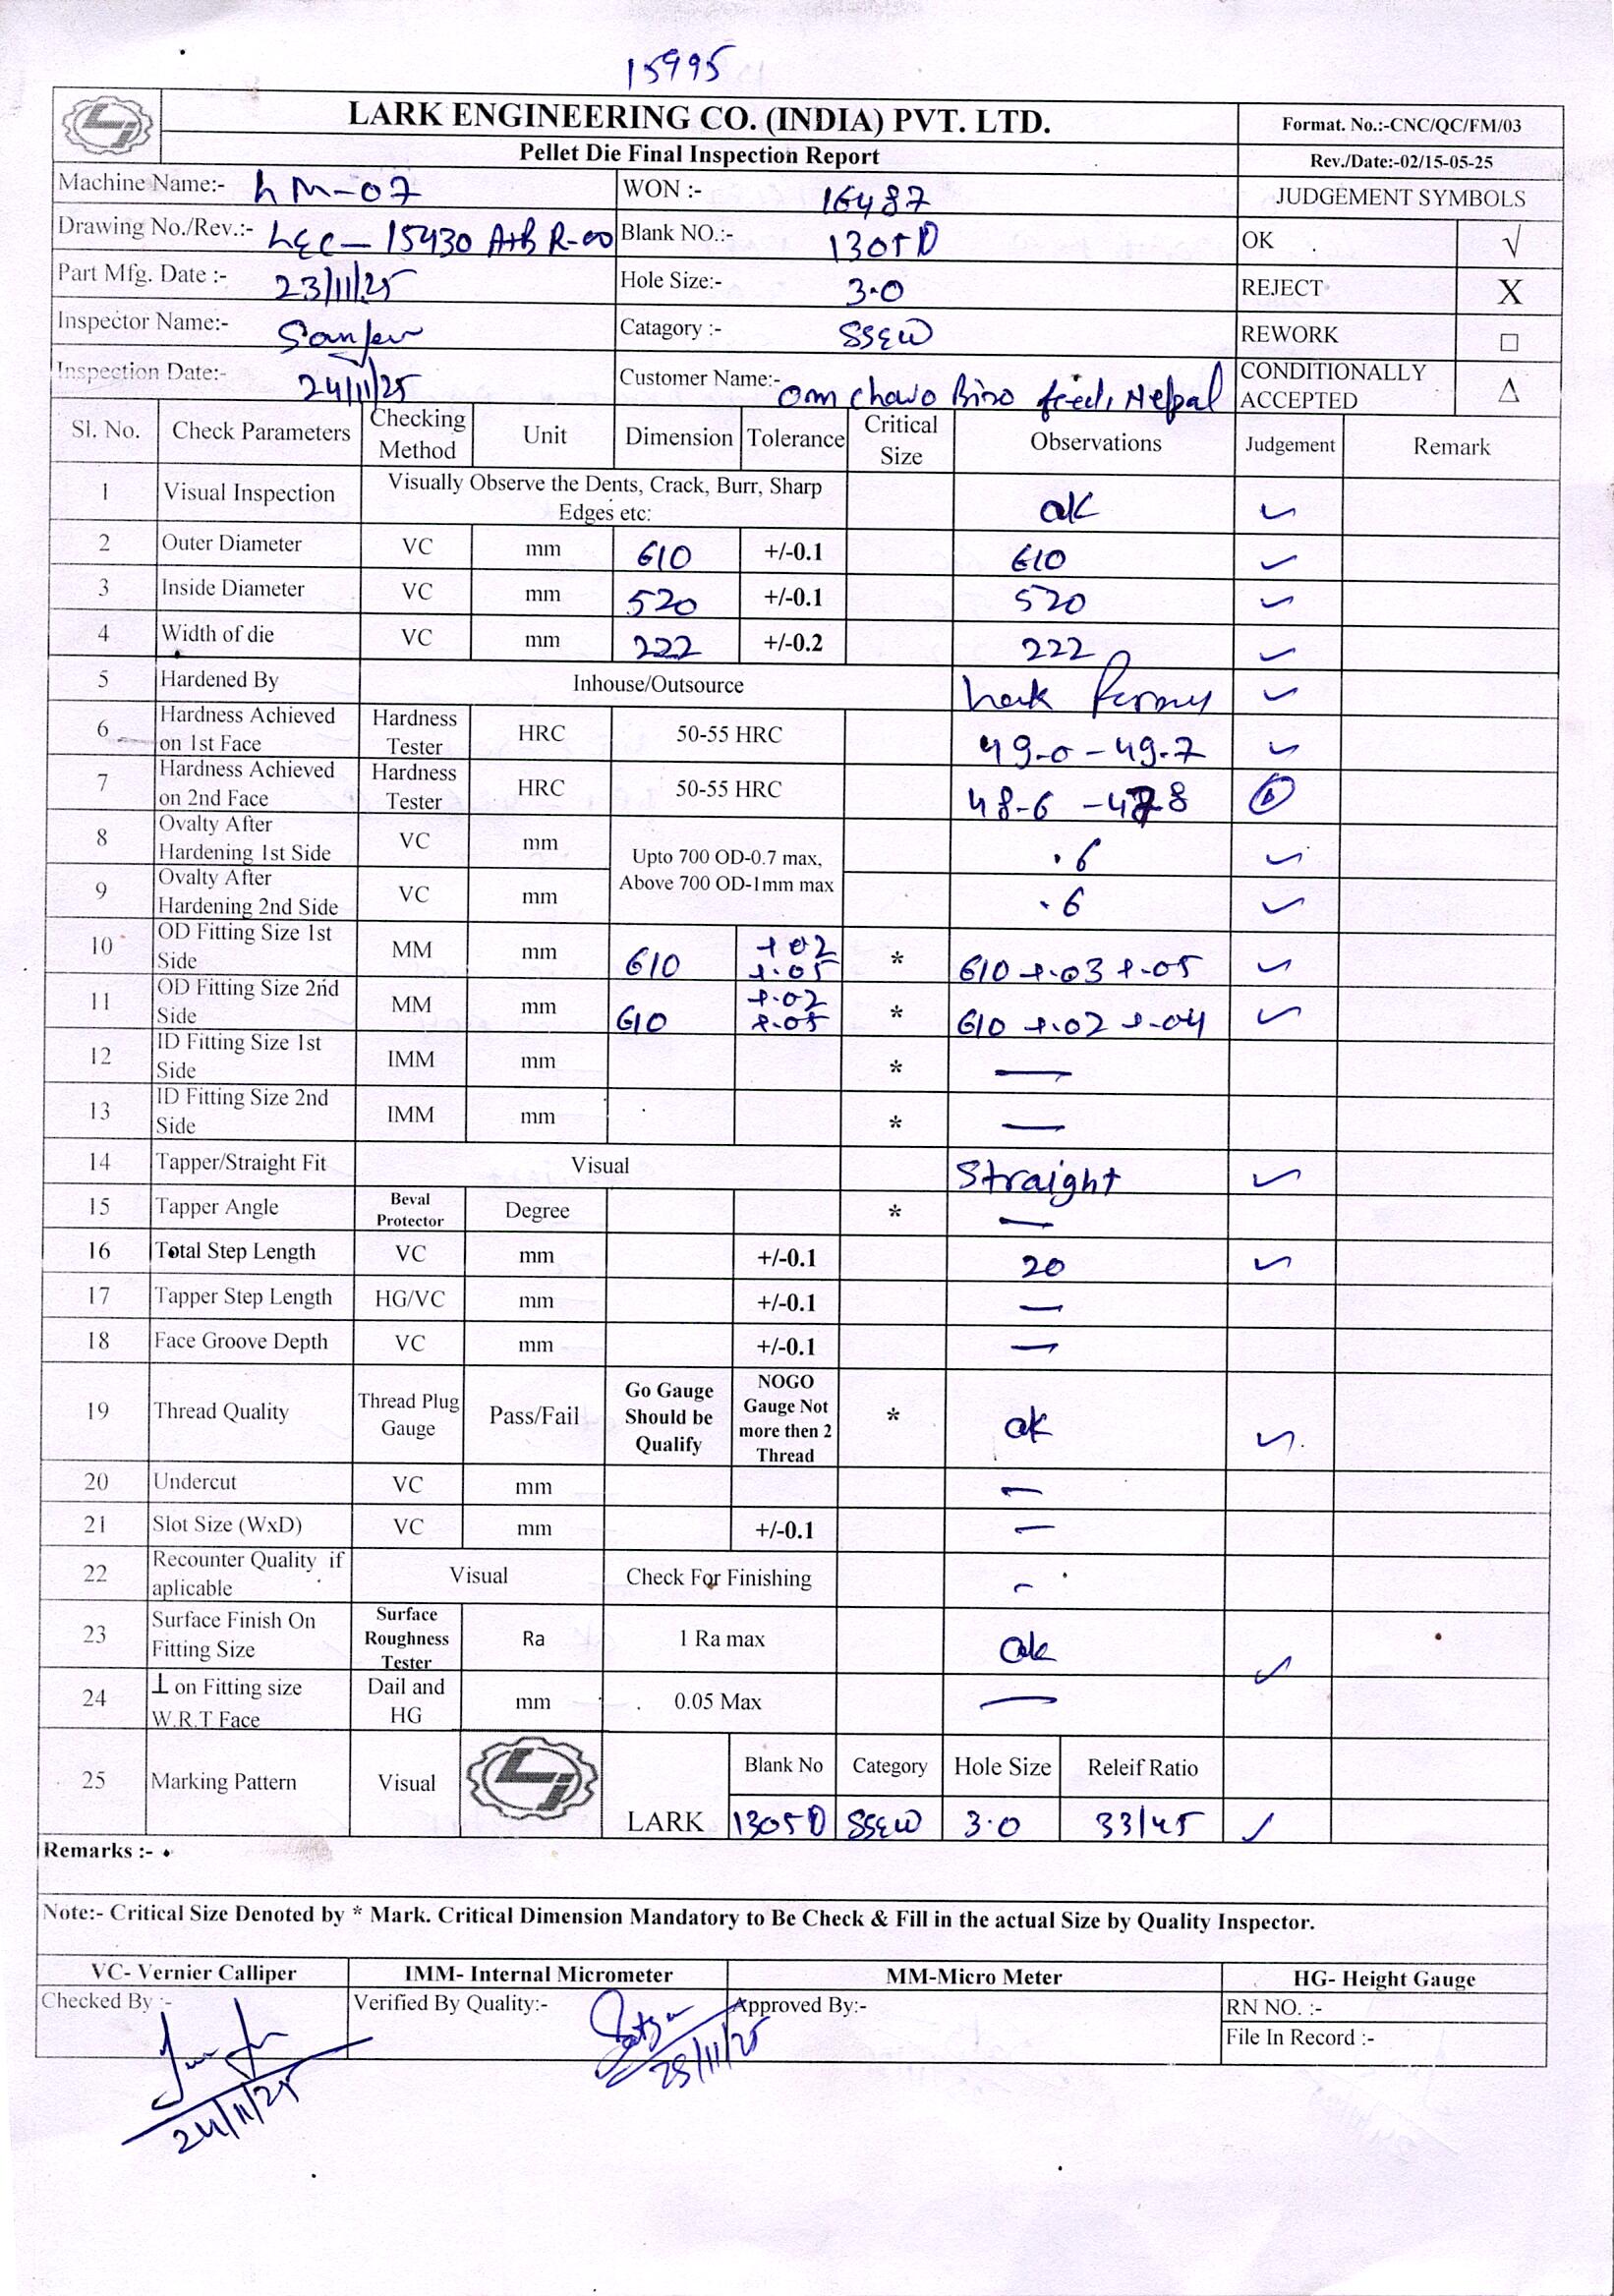 15995
LARK ENGINEERING CO. (INDIA) PVT. LTD.
Format. No.:-CNC/QC/FM/03
Pellet Die Final Inspection Report
Rev./Date:-02/15-05-25
Machine Name:- LM-07 WON :- 16487 JUDGEMENT SYMBOLS
Drawing No./Rev.:- LEC-15430 A+B R-00 Blank NO.:- 1305D OK √
Part Mfg. Date :- 23/11/25 Hole Size:- 3.0 REJECT X
Inspector Name:- Catagory :- SSEW REWORK □
Inspection Date:- 24/11/25 Customer Name:- Om feed, Nepal CONDITIONALLY ACCEPTED Δ
Sl. No. Check Parameters Checking Method Unit Dimension Tolerance Critical Size Observations Judgement Remark
1 Visual Inspection Visually Observe the Dents, Crack, Burr, Sharp Edges etc: ok ✓
2 Outer Diameter VC mm 610 +/-0.1 610 ✓
3 Inside Diameter VC mm 520 +/-0.1 520 ✓
4 Width of die VC mm 222 +/-0.2 222 ✓
5 Hardened By Inhouse/Outsource Lark ✓
6 Hardness Achieved on 1st Face Hardness Tester HRC 50-55 HRC 49.0 - 49.7 ✓
7 Hardness Achieved on 2nd Face Hardness Tester HRC 50-55 HRC 48-6 - Δ
8 Ovalty After Hardening 1st Side VC mm Upto 700 OD-0.7 max, Above 700 OD-1mm max .6 ✓
9 Ovalty After Hardening 2nd Side VC mm .6 ✓
10 OD Fitting Size 1st Side MM mm 610 +.02 +.05 * 610 +.03 +.05 ✓
11 OD Fitting Size 2nd Side MM mm 610 +.02 +.05 * 610 +.02 +.04 ✓
12 ID Fitting Size 1st Side IMM mm * —
13 ID Fitting Size 2nd Side IMM mm * —
14 Tapper/Straight Fit Visual Straight ✓
15 Tapper Angle Beval Protector Degree * —
16 Total Step Length VC mm +/-0.1 20 ✓
17 Tapper Step Length HG/VC mm +/-0.1 —
18 Face Groove Depth VC mm +/-0.1 —
19 Thread Quality Thread Plug Gauge Pass/Fail Go Gauge Should be Qualify NOGO Gauge Not more then 2 Thread * ok ✓
20 Undercut VC mm —
21 Slot Size (WxD) VC mm +/-0.1 —
22 Recounter Quality if aplicable Visual Check For Finishing -
23 Surface Finish On Fitting Size Surface Roughness Tester Ra 1 Ra max ok ✓
24 ⊥ on Fitting size W.R.T Face Dail and HG mm 0.05 Max —
25 Marking Pattern Visual LARK Blank No Category Hole Size Releif Ratio
1305D SSEW 3.0 33/45 ✓
Remarks :-
Note:- Critical Size Denoted by * Mark. Critical Dimension Mandatory to Be Check & Fill in the actual Size by Quality Inspector.
VC- Vernier Calliper IMM- Internal Micrometer MM-Micro Meter HG- Height Gauge
Checked By :- Verified By Quality:- Approved By:- RN NO. :-
File In Record :-
24/11/25 25/11/25